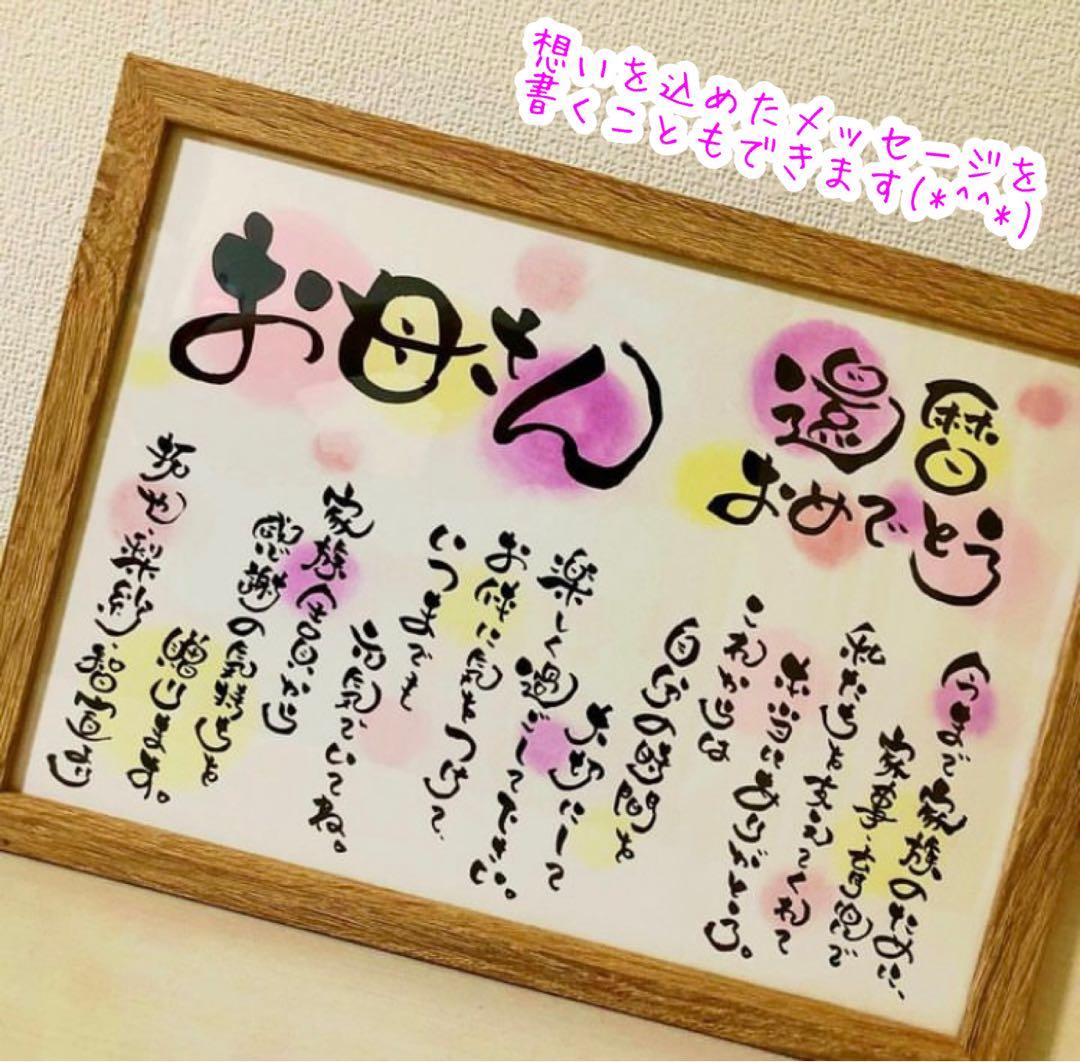 想いを込めたメッセージを
書くこともできます(*^^*)
お母さん
還暦
おめでとう
今まで家族のために、
家事・育児で
私たちを支えてくれて
本当にありがとう。
これからは
自分の時間を
大切にして
楽しく過ごして下さい。
お体に気をつけて、
いつまでも
元気でいてね。
家族全員から
感謝の気持ちを
贈ります。
拓也・梨紗・智直より